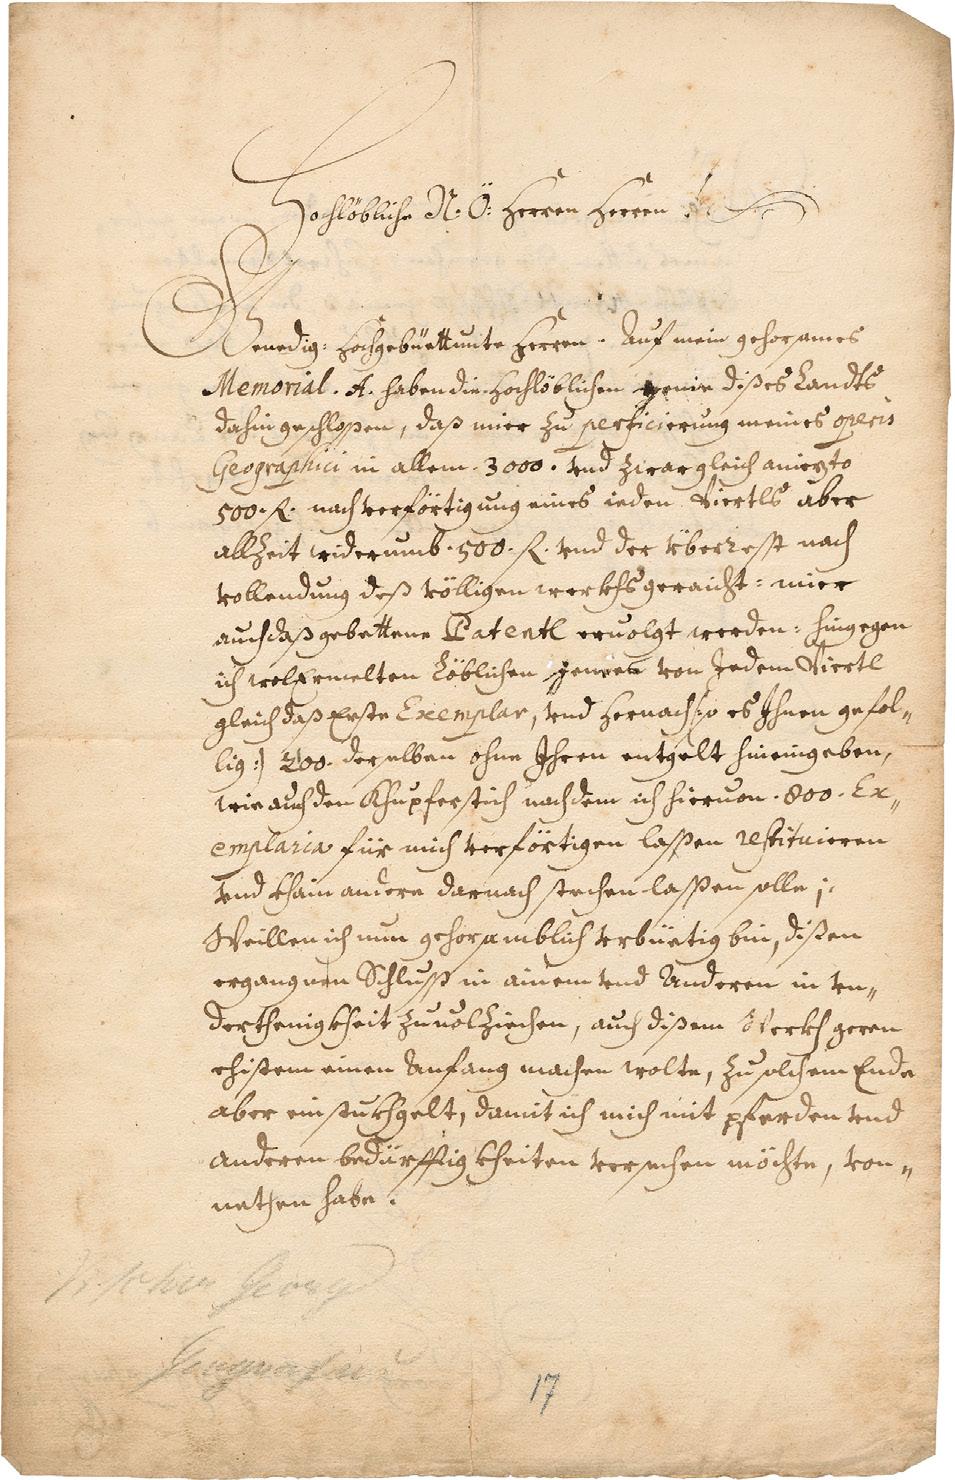 Hochlöbliche N: Ö: Herren Herren
Genedig: Hochgebüettunte Herren. Auf mein gehorsames
Memorial. A. haben die Hochlöblichen dißes Landts
dahin geschloßen, daß mier zu perficierung meines operis
Geographici in allem. 3000. vnd zwar gleich aniezto
500. fl. nach verförtigung eines ieden Viertls aber
allzeit widerumb. 500. fl. vnd der vberresst nach
vollendung deß völligen werkhs geraicht: mier
auch daß gebettene Patentl eruolgt werden: hingegen
ich wolermelten Löblichen von Jedem Viertl
gleich daß Erste Exemplar, vnd hernach |: so es Ihnen gefol„
lig :| 200. derselben ohne Ihren entgelt hineingeben,
wie auch den Khupferstich nachdem ich hieruon. 800. Ex„
emplaria für mich verförtigen laßen restituieren
vnd khain andere darnach stechen laßen solle;
Weillen ich nun gehorsamblich verbüetig bin, dißen
ergangnen Schluss in ainem vnd Anderen in vn„
derthenigkheit zuuolziechen, auch dißem Werkh geren
ehistem einen Anfang machen wolte, zu solchem Ende
aber ein stukhgelt, damit ich mich mit pferden vnd
anderen bedürfftigkheiten versehen möchte, von„
nethen habe.
Vischer Georg
17